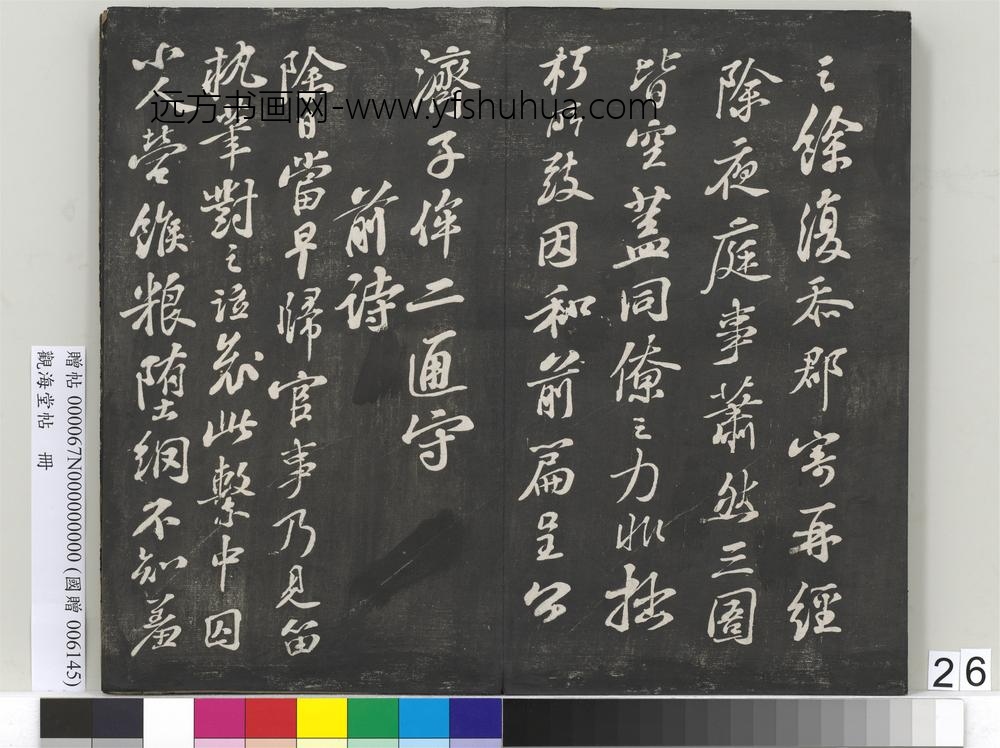 之餘復忝郡寄再經
除夜庭事蕭然三圄
皆空蓋同僚之力非拙
朽所致因和前篇呈公
濟子侔二通守
前詩
除日當早歸官事乃見留
執筆對之泣哀此繫中囚
小人營餱粮墮網不知羞
远方书画网-www.yfshuhua.com
贈帖 000067N000000000 (國贈 006145)
觀海堂帖 冊
26